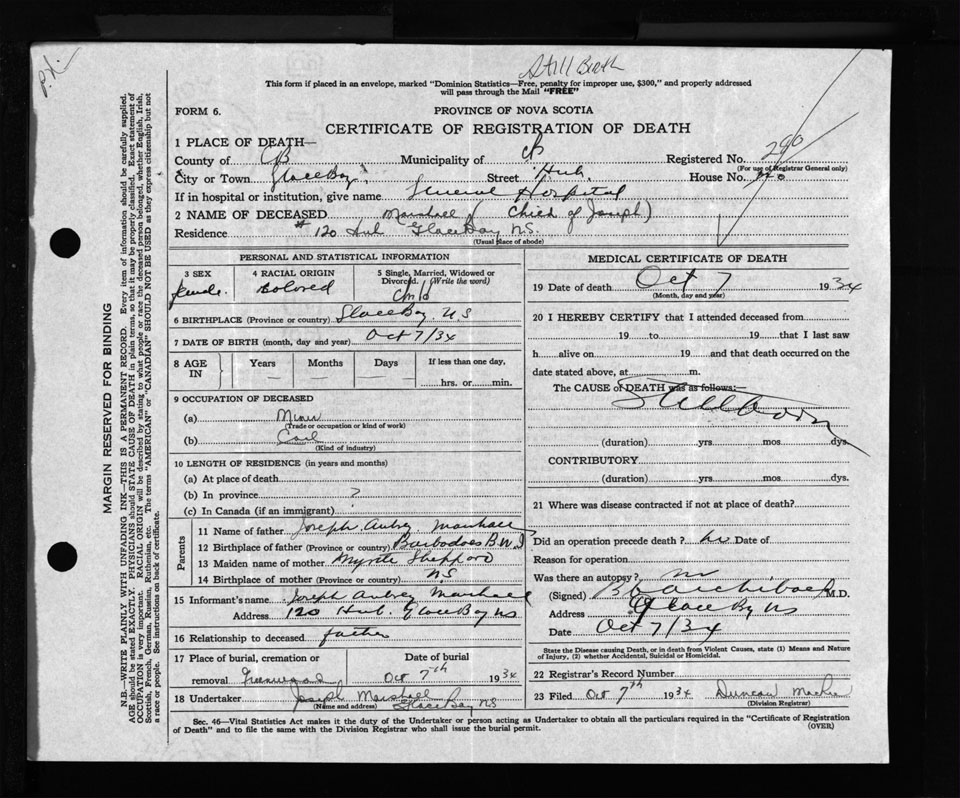 P.N.
Still Birth
This form if placed in an envelope, marked "Dominion Statistics—Free, penalty for improper use, $300," and properly addressed
will pass through the Mail "FREE"
FORM 6.
PROVINCE OF NOVA SCOTIA
CERTIFICATE OF REGISTRATION OF DEATH
1 PLACE OF DEATH—
County of CB Municipality of CB Registered No. 290
(For use of Registrar General only)
City or Town Glace Bay Street Hub House No. 120
If in hospital or institution, give name General Hospital
2 NAME OF DECEASED Marshall (Child of Joseph)
Residence #120 Hub Glace Bay N.S.
(Usual place of abode)
PERSONAL AND STATISTICAL INFORMATION
3 SEX female
4 RACIAL ORIGIN Colored
5 Single, Married, Widowed or Divorced. (Write the word) Child
6 BIRTHPLACE (Province or country) Glace Bay. N S
7 DATE OF BIRTH (month, day and year) Oct 7/34
8 AGE IN Years Months Days If less than one day, hrs. or min.
9 OCCUPATION OF DECEASED
(a) Miner
(Trade or occupation or kind of work)
(b) Coal
(Kind of industry)
10 LENGTH OF RESIDENCE (in years and months)
(a) At place of death
(b) In province ?
(c) In Canada (if an immigrant)
Parents
11 Name of father Joseph Aubrey Marshall
12 Birthplace of father (Province or country) Barbadoes B.W.I
13 Maiden name of mother Myrtle Sheppard
14 Birthplace of mother (Province or country) N.S
15 Informant's name Joseph Aubrey Marshall
Address 120 Hub. Glace Bay NS
16 Relationship to deceased father
17 Place of burial, cremation or removal Greenwood
Date of burial Oct 7th 1934
18 Undertaker Joseph Marshall
(Name and address) Glace Bay NS
MEDICAL CERTIFICATE OF DEATH
19 Date of death Oct 7 1934
(Month, day and year)
20 I HEREBY CERTIFY that I attended deceased from
19 to 19 that I last saw
h alive on 19 and that death occurred on the
date stated above, at m.
The CAUSE of DEATH was as follows:—
Stillborn
(duration) yrs. mos. dys.
CONTRIBUTORY
(duration) yrs. mos. dys.
21 Where was disease contracted if not at place of death?
Did an operation precede death? No Date of
Reason for operation
Was there an autopsy? no
(Signed) Archibald M.D.
Address Glace Bay NS
Date Oct 7/34
State the Disease causing Death, or in death from Violent Causes, state (1) Means and Nature
of Injury, (2) whether Accidental, Suicidal or Homicidal.
22 Registrar's Record Number
23 Filed Oct 7th 1934 Duncan
(Division Registrar)
Sec. 46—Vital Statistics Act makes it the duty of the Undertaker or person acting as Undertaker to obtain all the particulars required in the "Certificate of Registration
of Death" and to file the same with the Division Registrar who shall issue the burial permit.
(OVER)
MARGIN RESERVED FOR BINDING
N.B.—WRITE PLAINLY WITH UNFADING INK—THIS IS A PERMANENT RECORD. Every item of information should be carefully supplied.
AGE should be stated EXACTLY. PHYSICIANS should STATE CAUSE OF DEATH in plain terms, so that it may be properly classified. Exact statement of
OCCUPATION is very important. RACIAL ORIGIN will be described by stating to what people or race the deceased person belonged, whether English, Irish,
Scottish, French, German, Russian, Ruthenian, etc. The terms "AMERICAN" or "CANADIAN" SHOULD NOT BE USED as they express citizenship but not
a race or people. See instructions on back of certificate.